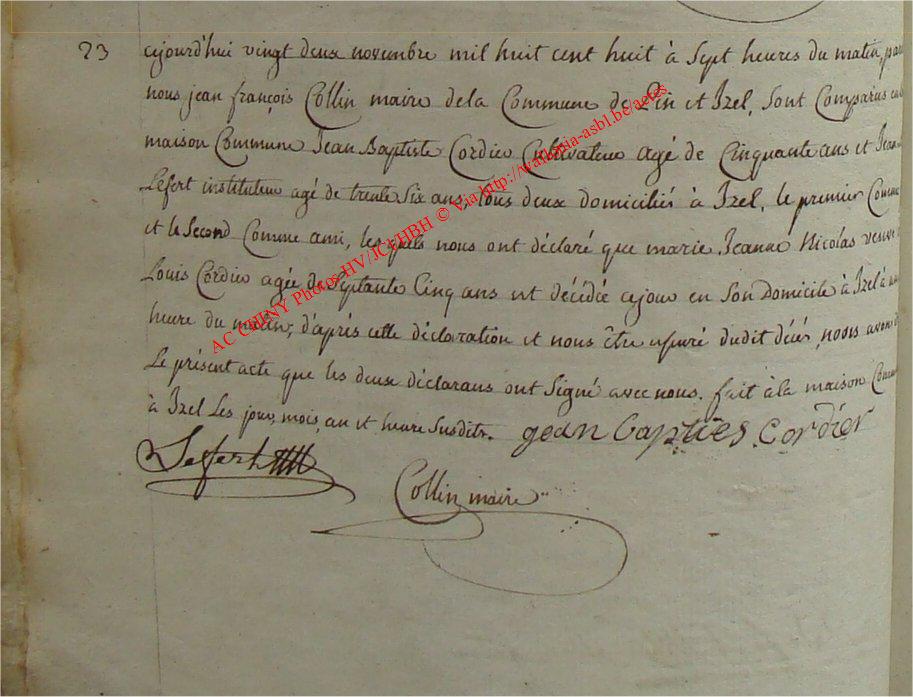 23 ajourd'hui vingt deux novembre mil huit cent huit à Sept heures du matin, par
nous jean françois Collin maire dela Commune de Pin et Izel, Sont Comparus en la
maison Commune Jean Baptiste Cordier Cultivateur agé de Cinquante ans et Jean
Lefert instituteur agé de trente Six ans, tous deux domiciliés à Izel, le premier Comme
et le Second Comme ami, lesquels nous ont déclaré que marie Jeanne Nicolas veuve
Louis Cordier agée de Septante Cinq ans est décédée ajour en Son Domicile à Izel à
heure du matin, d'après cette déclaration et nous être assuré dudit décés, nous avons
Le présent acte que les deux déclarans ont Signé avec nous. fait à la maison Commune
à Izel Les jour, mois, an et heure Susdits. jean baptiês Cordier
Lefert
Collin maire
AC CHINY Photos HV/JCl/HBH © Via http://wallonia-asbl.be/actes